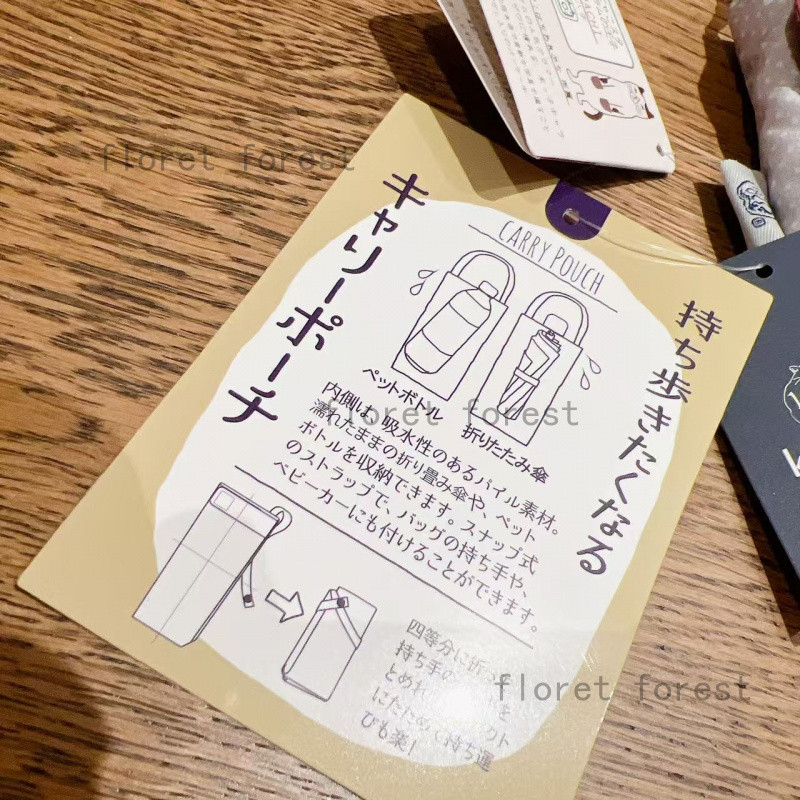 持ち歩きたくなる
キャリーポーチ
CARRY POUCH
ペットボトル
折りたたみ傘
内側は、吸水性のあるパイル素材。
濡れたままの折り畳み傘や、ペット
ボトルを収納できます。スナップ式
のストラップで、バッグの持ち手や、
ベビーカーにも付けることができます。
四等分に折
持ち手の
とめれ
クト
にたためて持ち運
びも楽!
floret forest
floret forest
floret forest